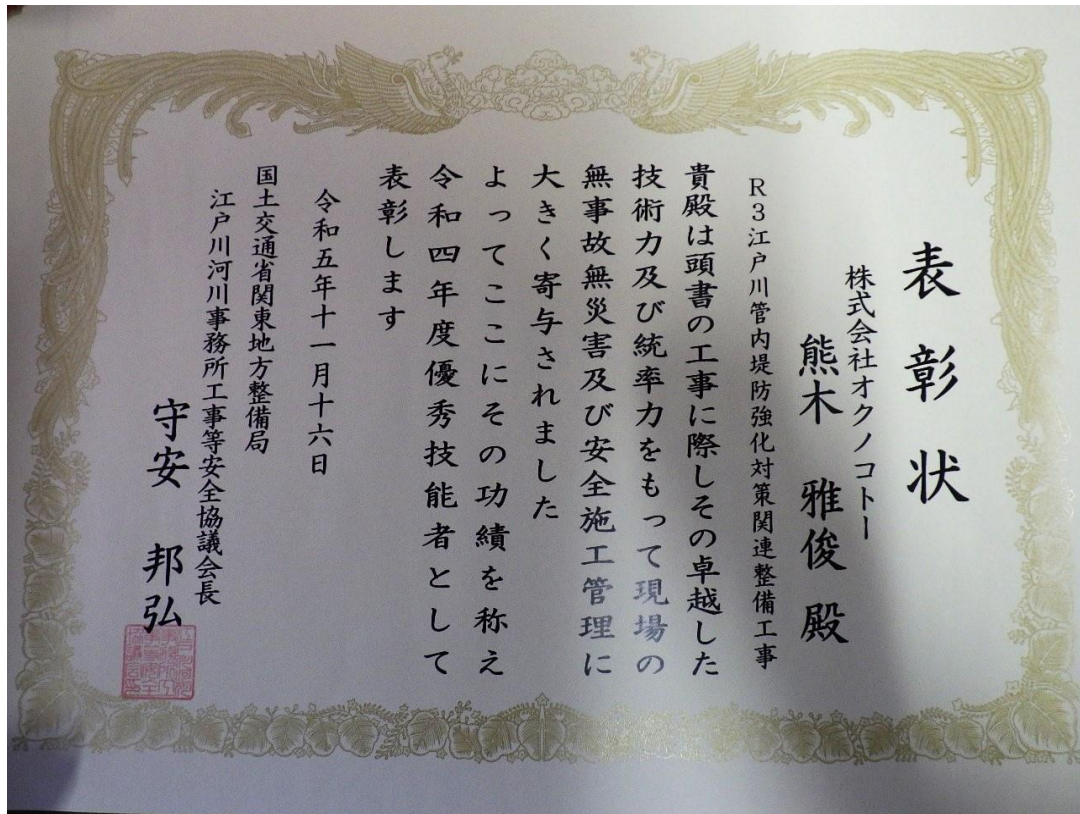 表彰状
株式会社オクノコトー
熊木 雅俊 殿
R3江戸川管内堤防強化対策関連整備工事
貴殿は頭書の工事に際しその卓越した
技術力及び統率力をもって現場の
無事故無災害及び安全施工管理に
大きく寄与されました
よってここにその功績を称え
令和四年度優秀技能者として
表彰します
令和五年十一月十六日
国土交通省関東地方整備局
江戸川河川事務所工事等安全協議会長
守安 邦弘